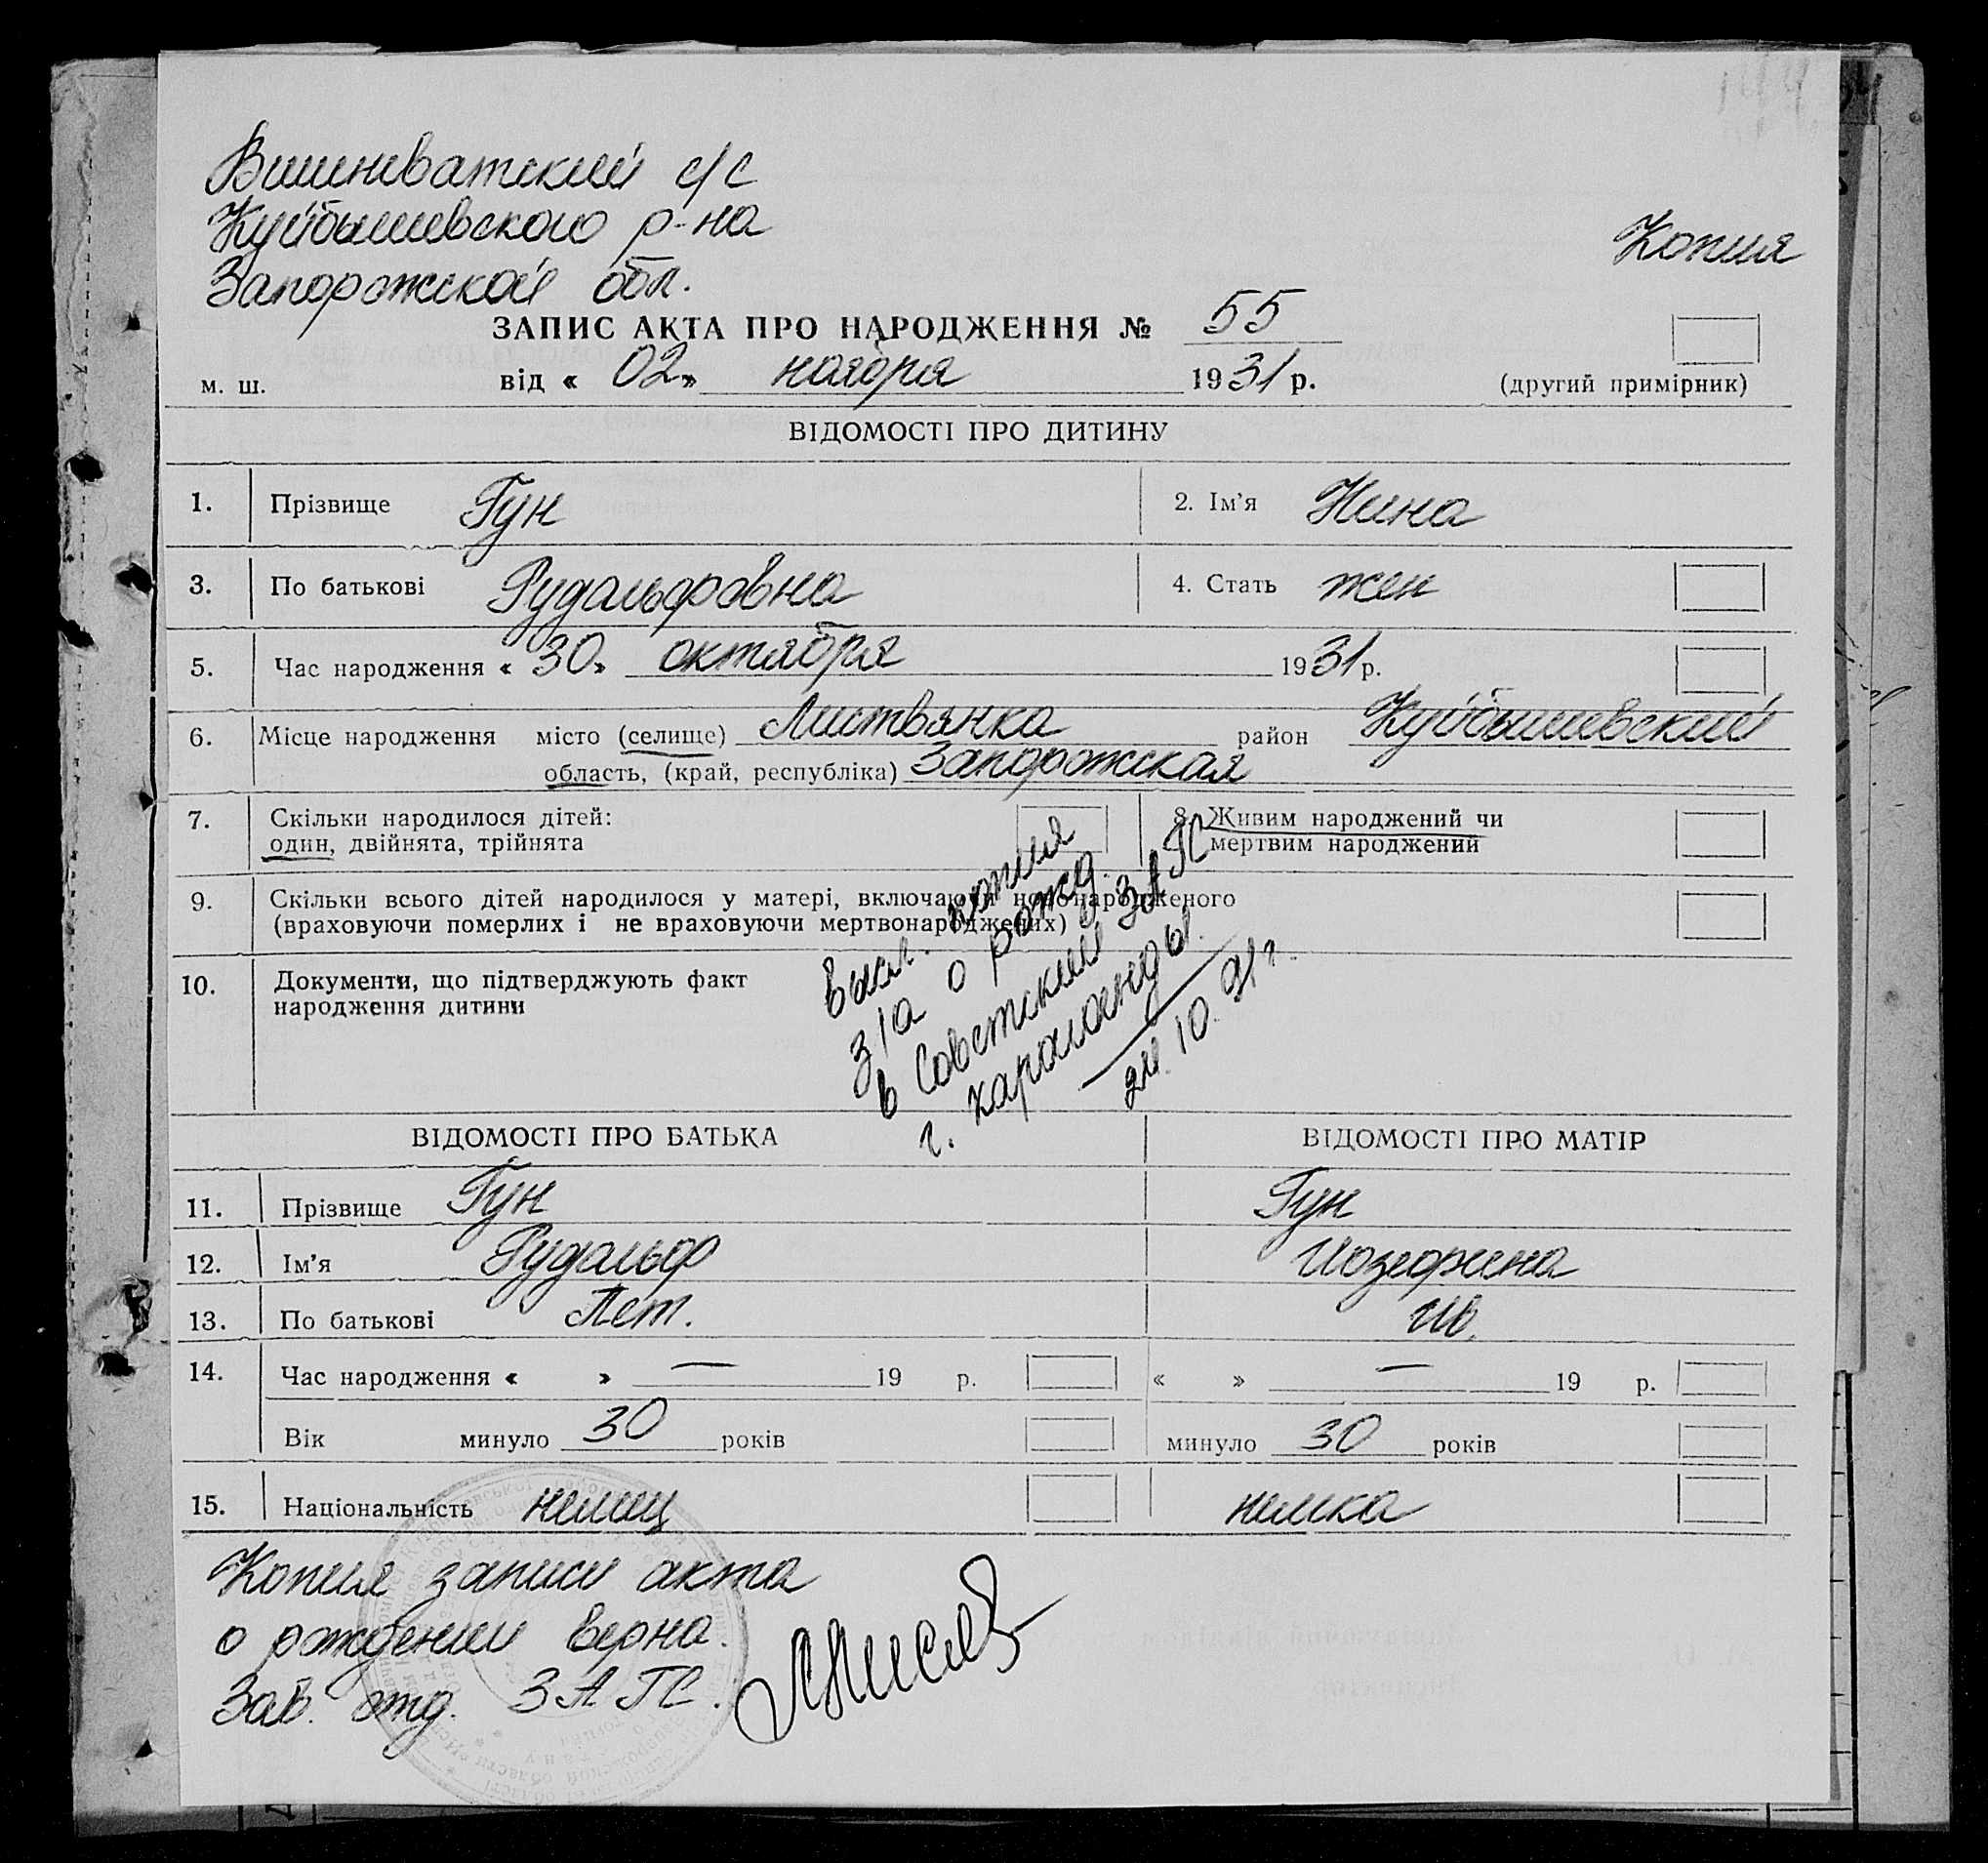 144
Вишневатский с/с
Куйбышевского р-на
Запорожской обл.
Копия
ЗАПИС АКТА ПРО НАРОДЖЕННЯ № 55
м. ш. від « 02» ноября 1931 р. (другий примірник)
ВІДОМОСТІ ПРО ДИТИНУ
1. Прізвище Гун 2. Ім’я Нина
3. По батькові Рудальфовна 4. Стать жен
5. Час народження « 30» октября 1931 р.
6. Місце народження місто (селище) Листвянка район Куйбышевский
область, (край, республіка) Запорожская
7. Скільки народилося дітей: 8. Живим народжений чи
один, двійнята, трійнята мертвим народжений
9. Скільки всього дітей народилося у матері, включаючи новонародженого
(враховуючи померлих і не враховуючи мертвонароджених)
10. Документи, що підтверджують факт
народження дитини
высл. копия
з/а о рожд.
в Советский ЗАГС
г. Караганды.
24.10.91г.
ВІДОМОСТІ ПРО БАТЬКА ВІДОМОСТІ ПРО МАТІР
11. Прізвище Гун Гун
12. Ім’я Рудальф Иозефина
13. По батькові Пет. Ив.
14. Час народження « » — 19 р. « » — 19 р.
Вік минуло 30 років минуло 30 років
15. Національність немец немка
Копия записи акта
о рождении верна.
Зав. отд. ЗАГС.